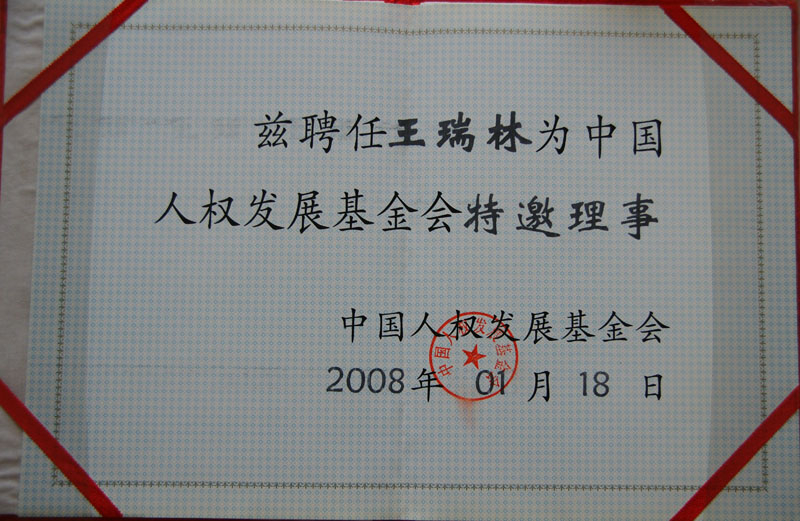 兹聘任王瑞林为中国
人权发展基金会特邀理事
中国人权发展基金会
中国人权发展基金会
2008年 01月 18日